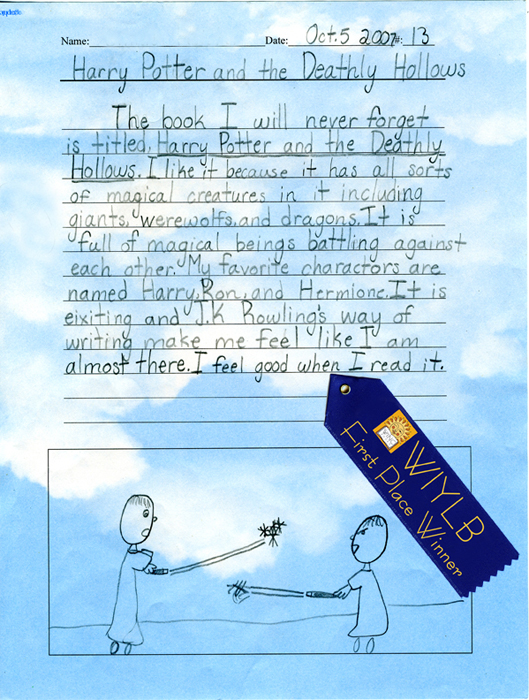 Name: Date: Oct. 5 2007 #: 13
Harry Potter and the Deathly Hollows
The book I will never forget
is titled, Harry Potter and the Deathly
Hollows. I like it because it has all sorts
of magical creatures in it including
giants, werewolfs, and dragons. It is
full of magical beings battling against
each other. My favorite charactors are
named Harry, Ron, and Hermione. It is
eixiting and J.K Rowling's way of
writing make me feel like I am
almost there. I feel good when I read it.
WIYLB
First Place Winner